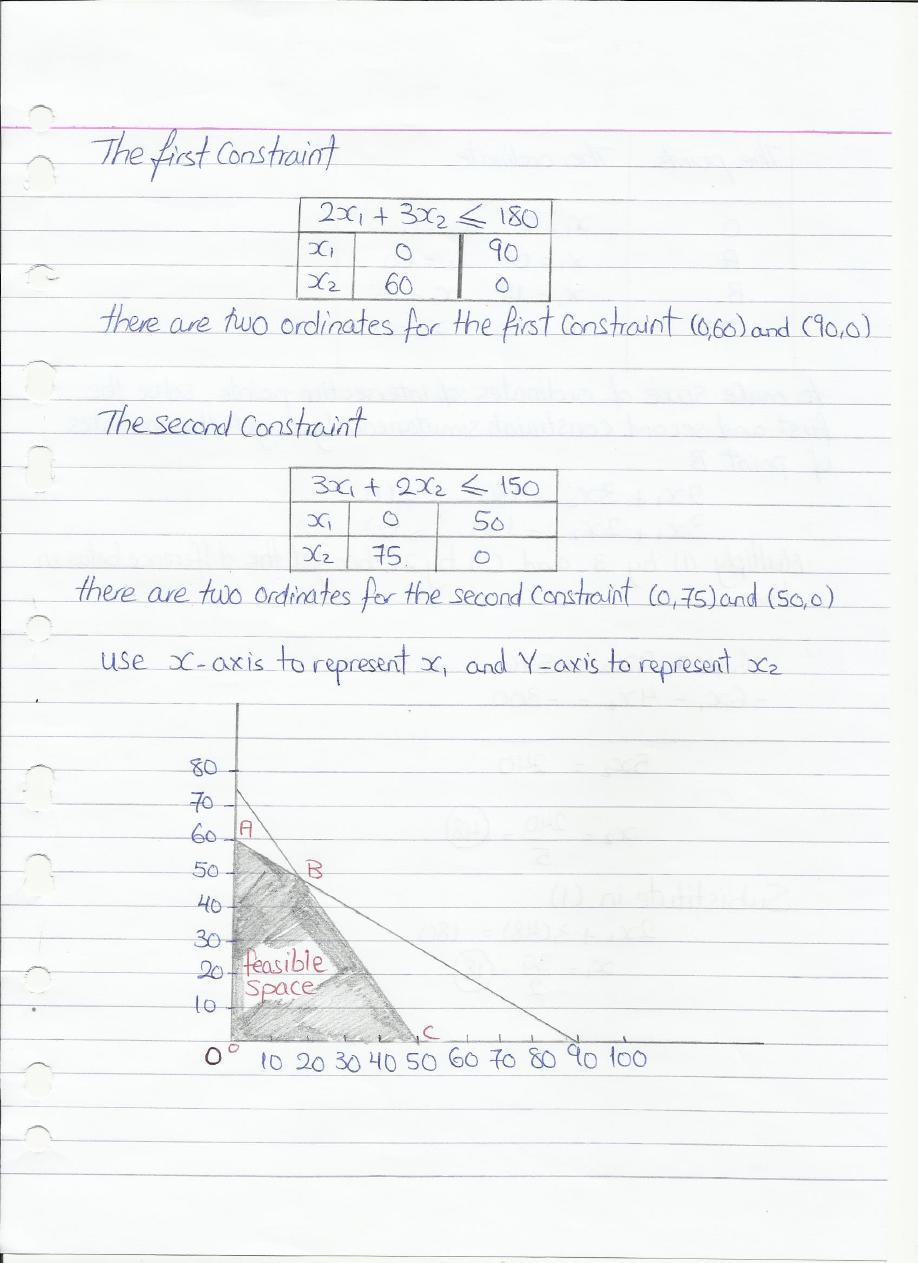 The first Constraint
2x₁ + 3x₂ ⩽ 180
x₁ 0 90
x₂ 60 0
there are two ordinates for the first Constraint (0,60) and (90,0)
The second Constraint
3x₁ + 2x₂ ⩽ 150
x₁ 0 50
x₂ 75 0
there are two ordinates for the second Constraint (0,75) and (50,0)
use x-axis to represent x₁ and Y-axis to represent x₂
80
70
60 A
50 B
40
30
20 feasible
space
10
C
0 0 10 20 30 40 50 60 70 80 90 100